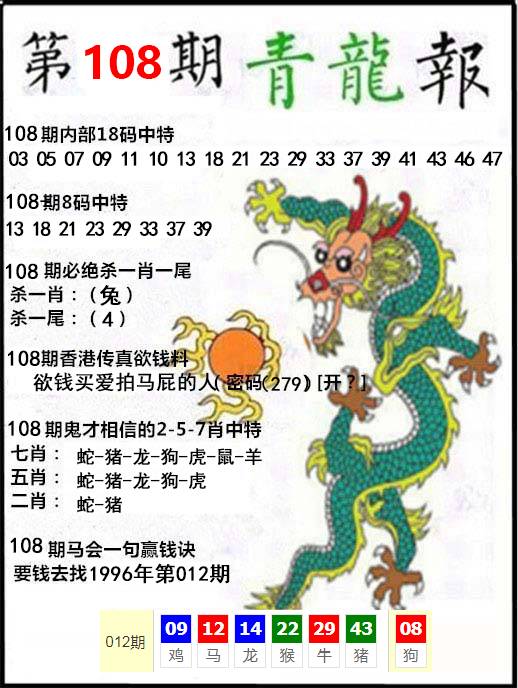 第108期 青龍報
108期内部18码中特
03 05 07 09 11 10 13 18 21 23 29 33 37 39 41 43 46 47
108期8码中特
13 18 21 23 29 33 37 39
108期必绝杀一肖一尾
杀一肖：（兔）
杀一尾：（4）
108期香港传真欲钱料
欲钱买爱拍马屁的人（密码(279）[开？]
108期鬼才相信的2-5-7肖中特
七肖： 蛇-猪-龙-狗-虎-鼠-羊
五肖： 蛇-猪-龙-狗-虎
二肖： 蛇-猪
108期马会一句赢钱诀
要钱去找1996年第012期
012期 09 12 14 22 29 43 08
鸡 马 龙 猴 牛 猪 狗